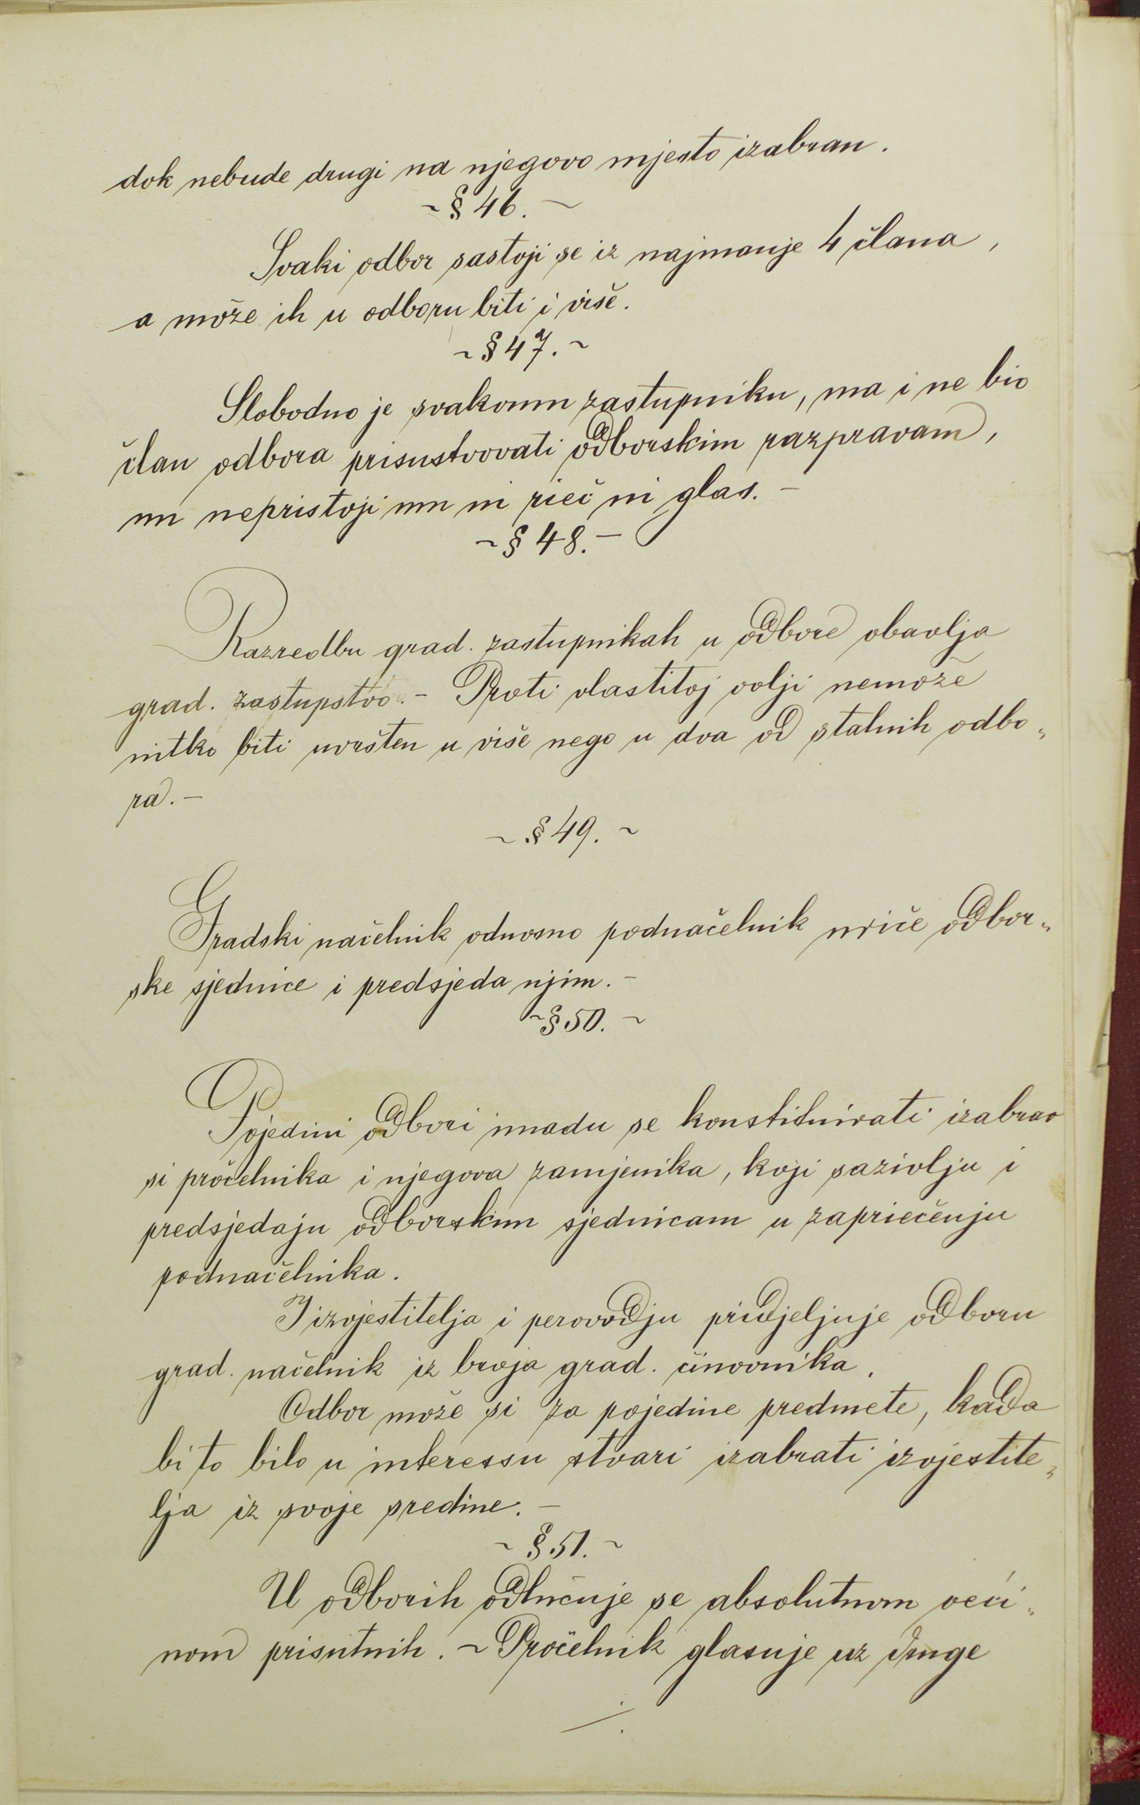 dok nebude drugi na njegovo mjesto izabran.
~ § 46. —
Svaki odbor sastoji se iz najmanje 4 člana,
a može ih u odboru biti i više.
~ § 47. ~
Slobodno je svakomu zastupniku, ma i ne bio
član odbora prisustvovati odborskim razpravam,
nu nepristoji mu ni rieč ni glas. —
~ § 48. —
Razredbu grad. zastupnikah u odbore obavlja
grad. zastupstvo. — Proti vlastitoj volji nemože
nitko biti uvršten u više nego u dva od stalnih odbo„
ra. —
~ § 49. ~
Gradski načelnik odnosno podnačelnik uriče odbor„
ske sjednice i predsjeda njim. —
~ § 50. ~
Pojedini odbori imadu se konstituirati izabrav
si pročelnika i njegova zamjenika, koji sazivlju i
predsjedaju odborskim sjednicam u zapriečenju
podnačelnika.
Izvjestitelja i perovodju pridjeljuje odboru
grad. načelnik iz broja grad. činovnika.
Odbor može si za pojedine predmete, kada
bi to bilo u interessu stvari izabrati izvjestite„
lja iz svoje sredine. —
~ § 51. ~
U odborih odlučuje se absolutnom veći„
nom prisutnih. ~ Pročelnik glasuje uz druge